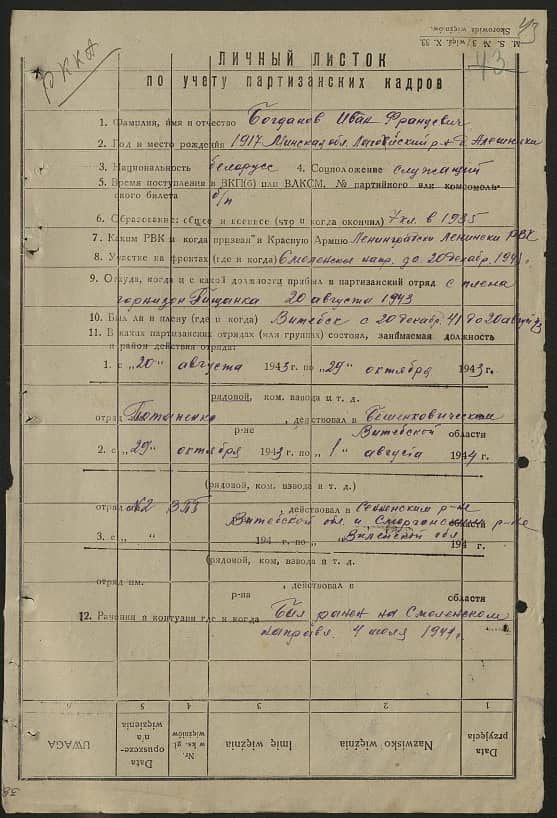 43
M. S. № 3/więź. X. 33.
Skorowidz więźniów.
43
РККА
ЛИЧНЫЙ ЛИСТОК
по учету партизанских кадров
1. Фамилия, имя и отчество Богданов Иван Францевич
2. Год и место рождения 1917 Минская обл. Логойский р-н д.
3. Национальность белорусс 4. Соцположение служащий
5. Время поступления в ВКП(б) или ВЛКСМ, № партийного или комсомоль-
ского билета б/п
6. Образование: общее и военное (что и когда окончил) 7 кл. в 1935
7. Каким РВК и когда призван в Красную Армию Ленинградски Ленински РВК
8. Участие на фронтах (где и когда) Смоленское напр. до 20 декабр. 1941 г.
9. Откуда, когда и с какой должности прибыл в партизанский отряд с плена
горнизон 20 августа 1943
10. Был ли в плену (где и когда) Витебск с 20 декабр. 41 до 20 август 43
11. В каких партизанских отрядах (или группах) состоял, занимаемая должность
и район действия отряда:
1. с „20" августа 1943 г. по „29" октября 1943 г.
рядовой, ком. взвода и т. д.
отряд Потапенко, действовал в Бешенковическом
р-не Витебской области
2. с „29" октября 1943 г. по „1" августа 1944 г.
(рядовой, ком. взвода и т. д.)
отряд №2, действовал в р-не
Витебской обл. и Сморгонском р-не
области
Виленской обл.
3. с „ " 194 г. по „ " 194 г.
(рядовой, ком. взвода и т. д.
отряд им. , действовал в
р-на области
12. Ранения и контузии где и когда Был ранен на Смоленском
направл. 4 июля 1941 г.
UWAGA
Data opuszcze-
nia
więzienia
Nr.
w ks. gł.
więźniów
Imię więźnia
Nazwisko więźnia
Data
przyjęcia
6
5
4
3
2
1
38